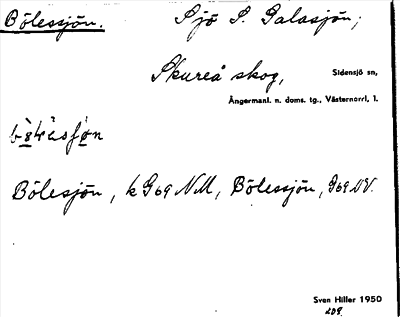 Bölessjön. Sjö S. Galasjön;
Skureå skog, Sidensjö sn,
Ångermanl. n. doms. tg., Västernorrl. l.
Bölesjön, k G69 NM, Bölessjön, G69 NV.
Sven Hiller 1950